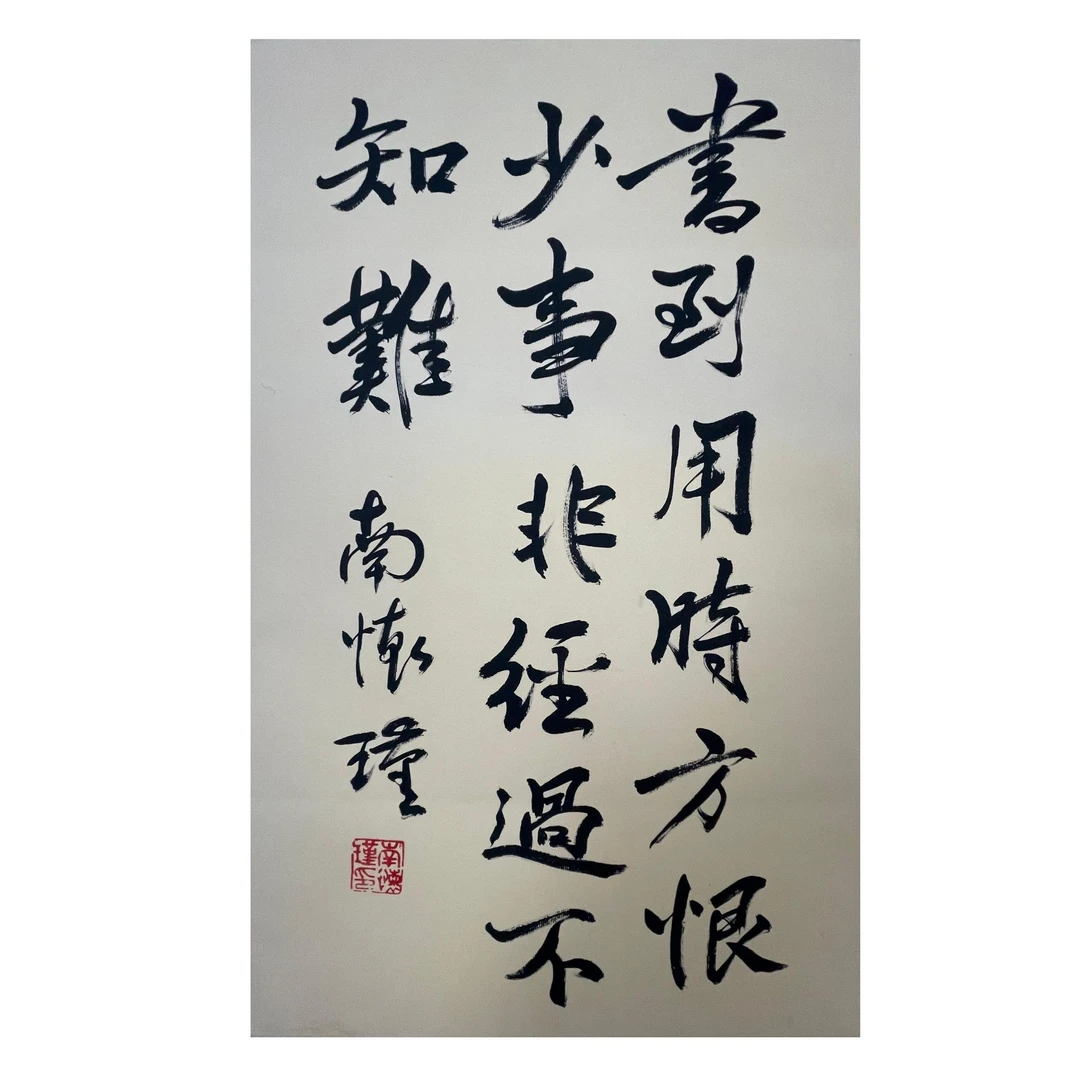 書到用時方恨
少事非經過不
知難
南懷瑾
南懷瑾印